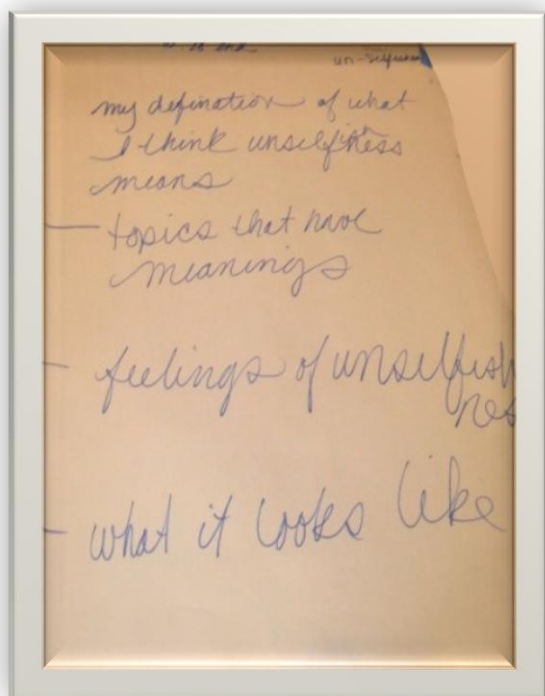 my defination of what
I think unselfishness
means
— topics that have
meanings
- feelings of unselfish
nes
- what it looks like